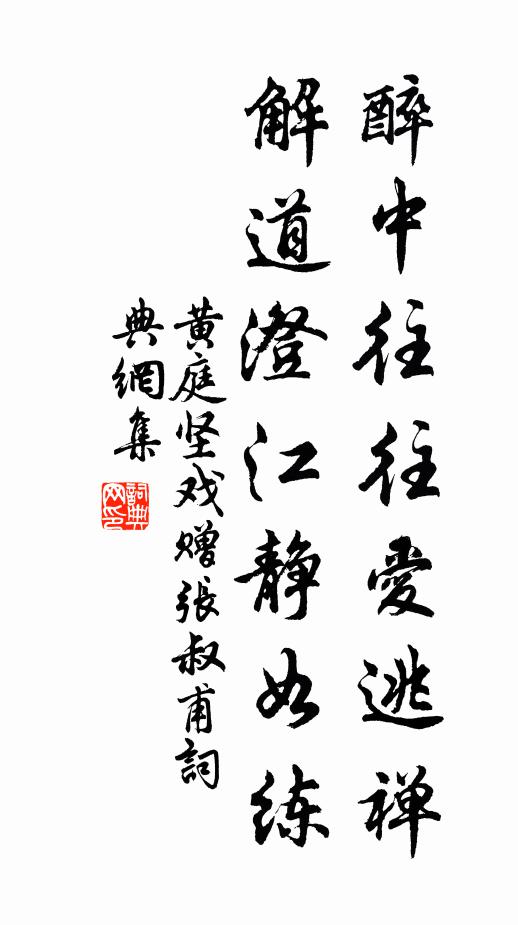 醉中往往愛逃禅
解道澄江静如练
黄庭坚戏赠張叔甫詞
典網集
詞典
网印